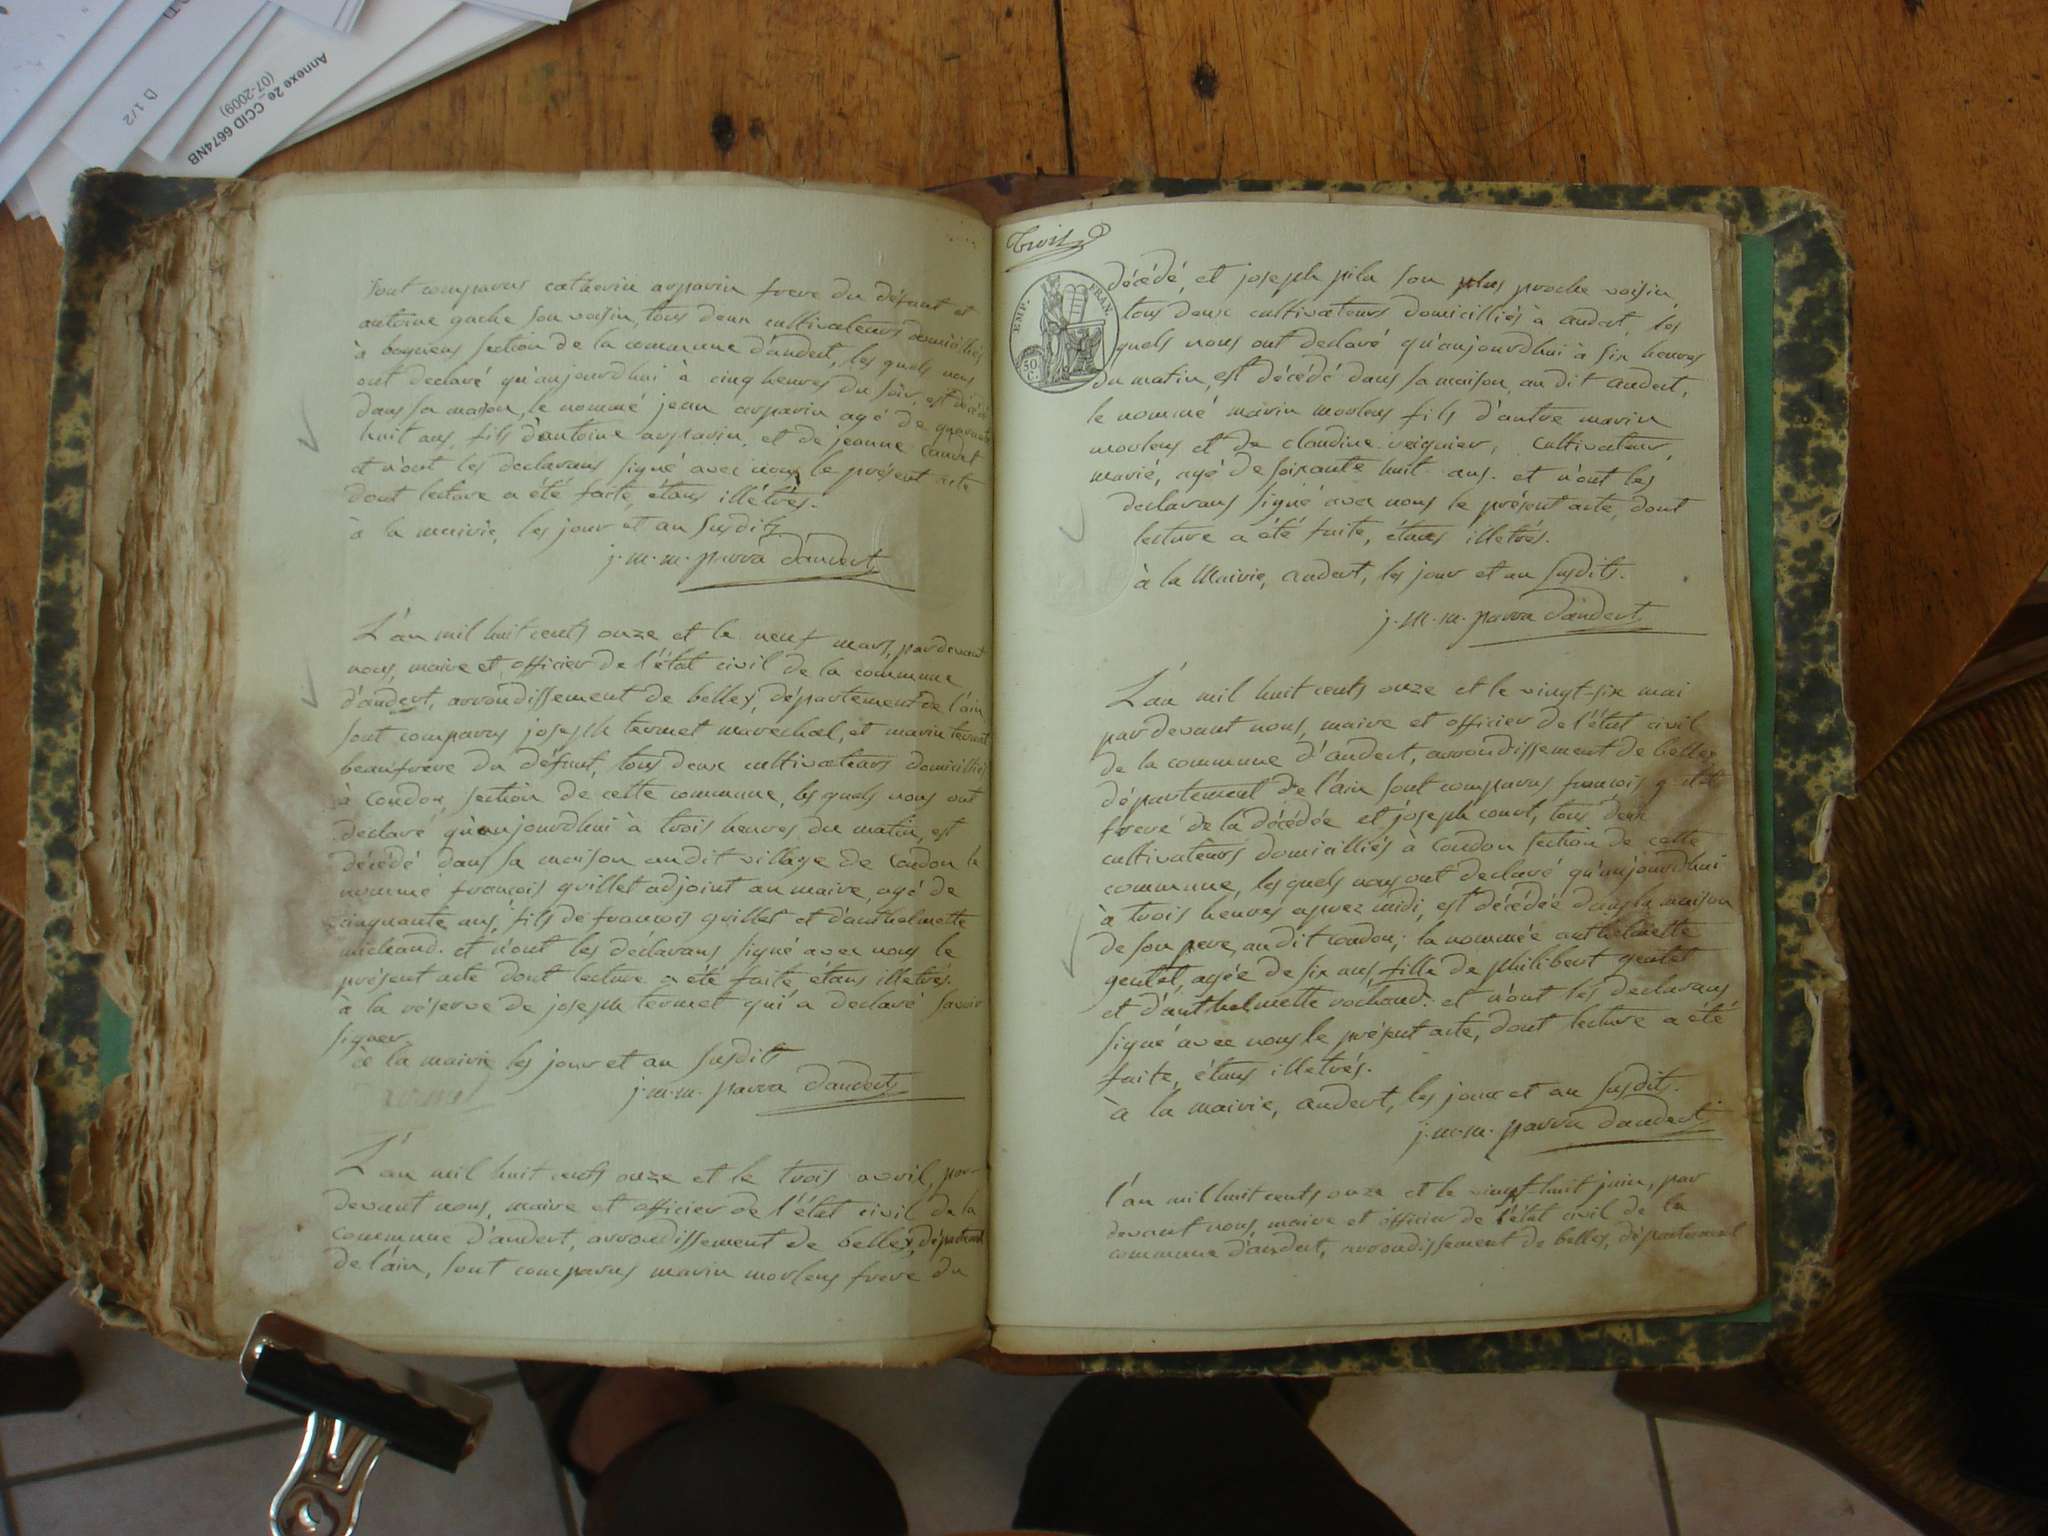 Annexe 2e_CCID 6674NB
(07-2009)
D 1/2
sont comparus catherin arparin frere du défunt et
antoine gache son voisin, tous deux cultivateurs domiciliés
à bognens section de la commune d'andert, les quels nous
ont declaré qu'aujourdhui à cinq heures du soir, est décédé
dans sa maison, le nommé jean arparin agé de quarante
huit ans, fils d'antoine arparin, et de jeanne
et n'ont les declarans signé avec nous le présent acte
dont lecture a été faite, étans illétrés.
à la mairie, les jour et an susdits.
j. m. m. parra d'andert
L'an mil huit cents onze et le neuf mars, par devant
nous, maire et officier de l'état civil de la commune
d'andert, arrondissement de belley, département de l'ain
sont comparus joseph termet marechal, et marin termet
beaufrere du défunt, tous deux cultivateurs domiciliés
à Condon, section de cette commune, les quels nous ont
declaré qu'aujourdhui à trois heures du matin, est
décédé dans sa maison audit village de Condon le
nommé françois grillet adjoint au maire, agé de
cinquante ans, fils de françois grillet et d'anthelmette
michaud. et n'ont les déclarans signé avec nous le
présent acte dont lecture a été faite étans illetrés.
à la réserve de joseph termet qui a declaré savoir
signer.
à la mairie les jour et an susdits
j. m. m. parra d'andert
L'an mil huit cents onze et le trois avril, par-
devant nous, maire et officier de l'état civil de la
commune d'andert, arrondissement de belley, département
de l'ain, sont comparus marin morlens frere du
Trois
EMP. FRAN.
50 C.
décédé, et joseph pila son plus proche voisin,
tous deux cultivateurs domicilliés à andert, les
quels nous ont declaré qu'aujourdhui à six heures
du matin, est décédé dans sa maison, au dit andert,
le nommé marin morlens fils d'autre marin
morlens et de claudine veignier, cultivateur,
marié, agé de soixante huit ans. et n'ont les
declarans signé avec nous le présent acte, dont
lecture a été faite, étans illetrés.
à la Mairie, andert, les jour et an susdits.
j. m. m. parra d'andert
L'an mil huit cents onze et le vingt-six mai
par devant nous, maire et officier de l'état civil
de la commune d'andert, arrondissement de belley
département de l'ain sont comparus françois gentet
frere de la décédée et joseph court, tous deux
cultivateurs domicilliés à Condon section de cette
commune, les quels nous ont declaré qu'aujourdhui
à trois heures aprez midi, est décédée dans la maison
de son pere, au dit condon; la nommée anthelmette
gentet, agée de six ans, fille de philibert gentet
et d'anthelmette rochaud. et n'ont les declarans
signé avec nous le présent acte, dont lecture a été
faite, étans illetrés.
à la mairie, andert, les jour et an susdits.
j. m. m. parra d'andert
l'an mil huit cents onze et le vingt-huit juin, par
devant nous, maire et officier de l'état civil de la
commune d'andert, arrondissement de belley, département